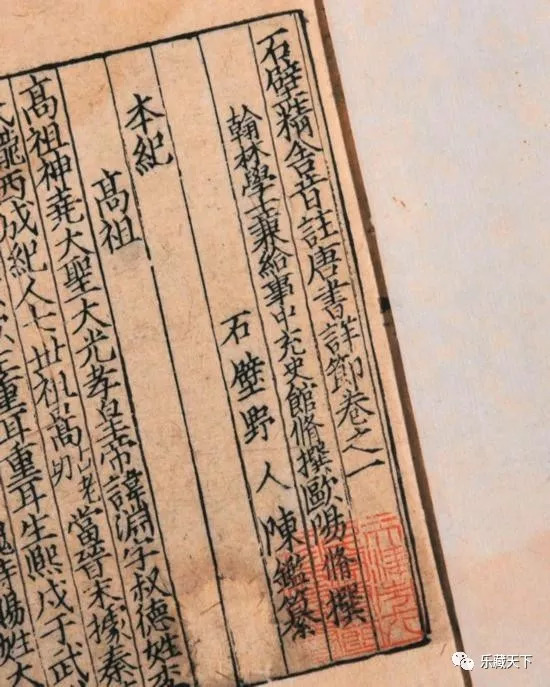 石壁精舍音註唐書詳節卷之一
翰林學士兼給事中充史館脩撰歐陽脩撰
石壁野人陳鑑纂
本紀
高祖
高祖神堯大聖大光孝皇帝諱淵字叔德姓李
隴西成紀人七世祖暠古老當晉末據秦
重耳重耳生熙戍于武
賜姓大
乐藏天下